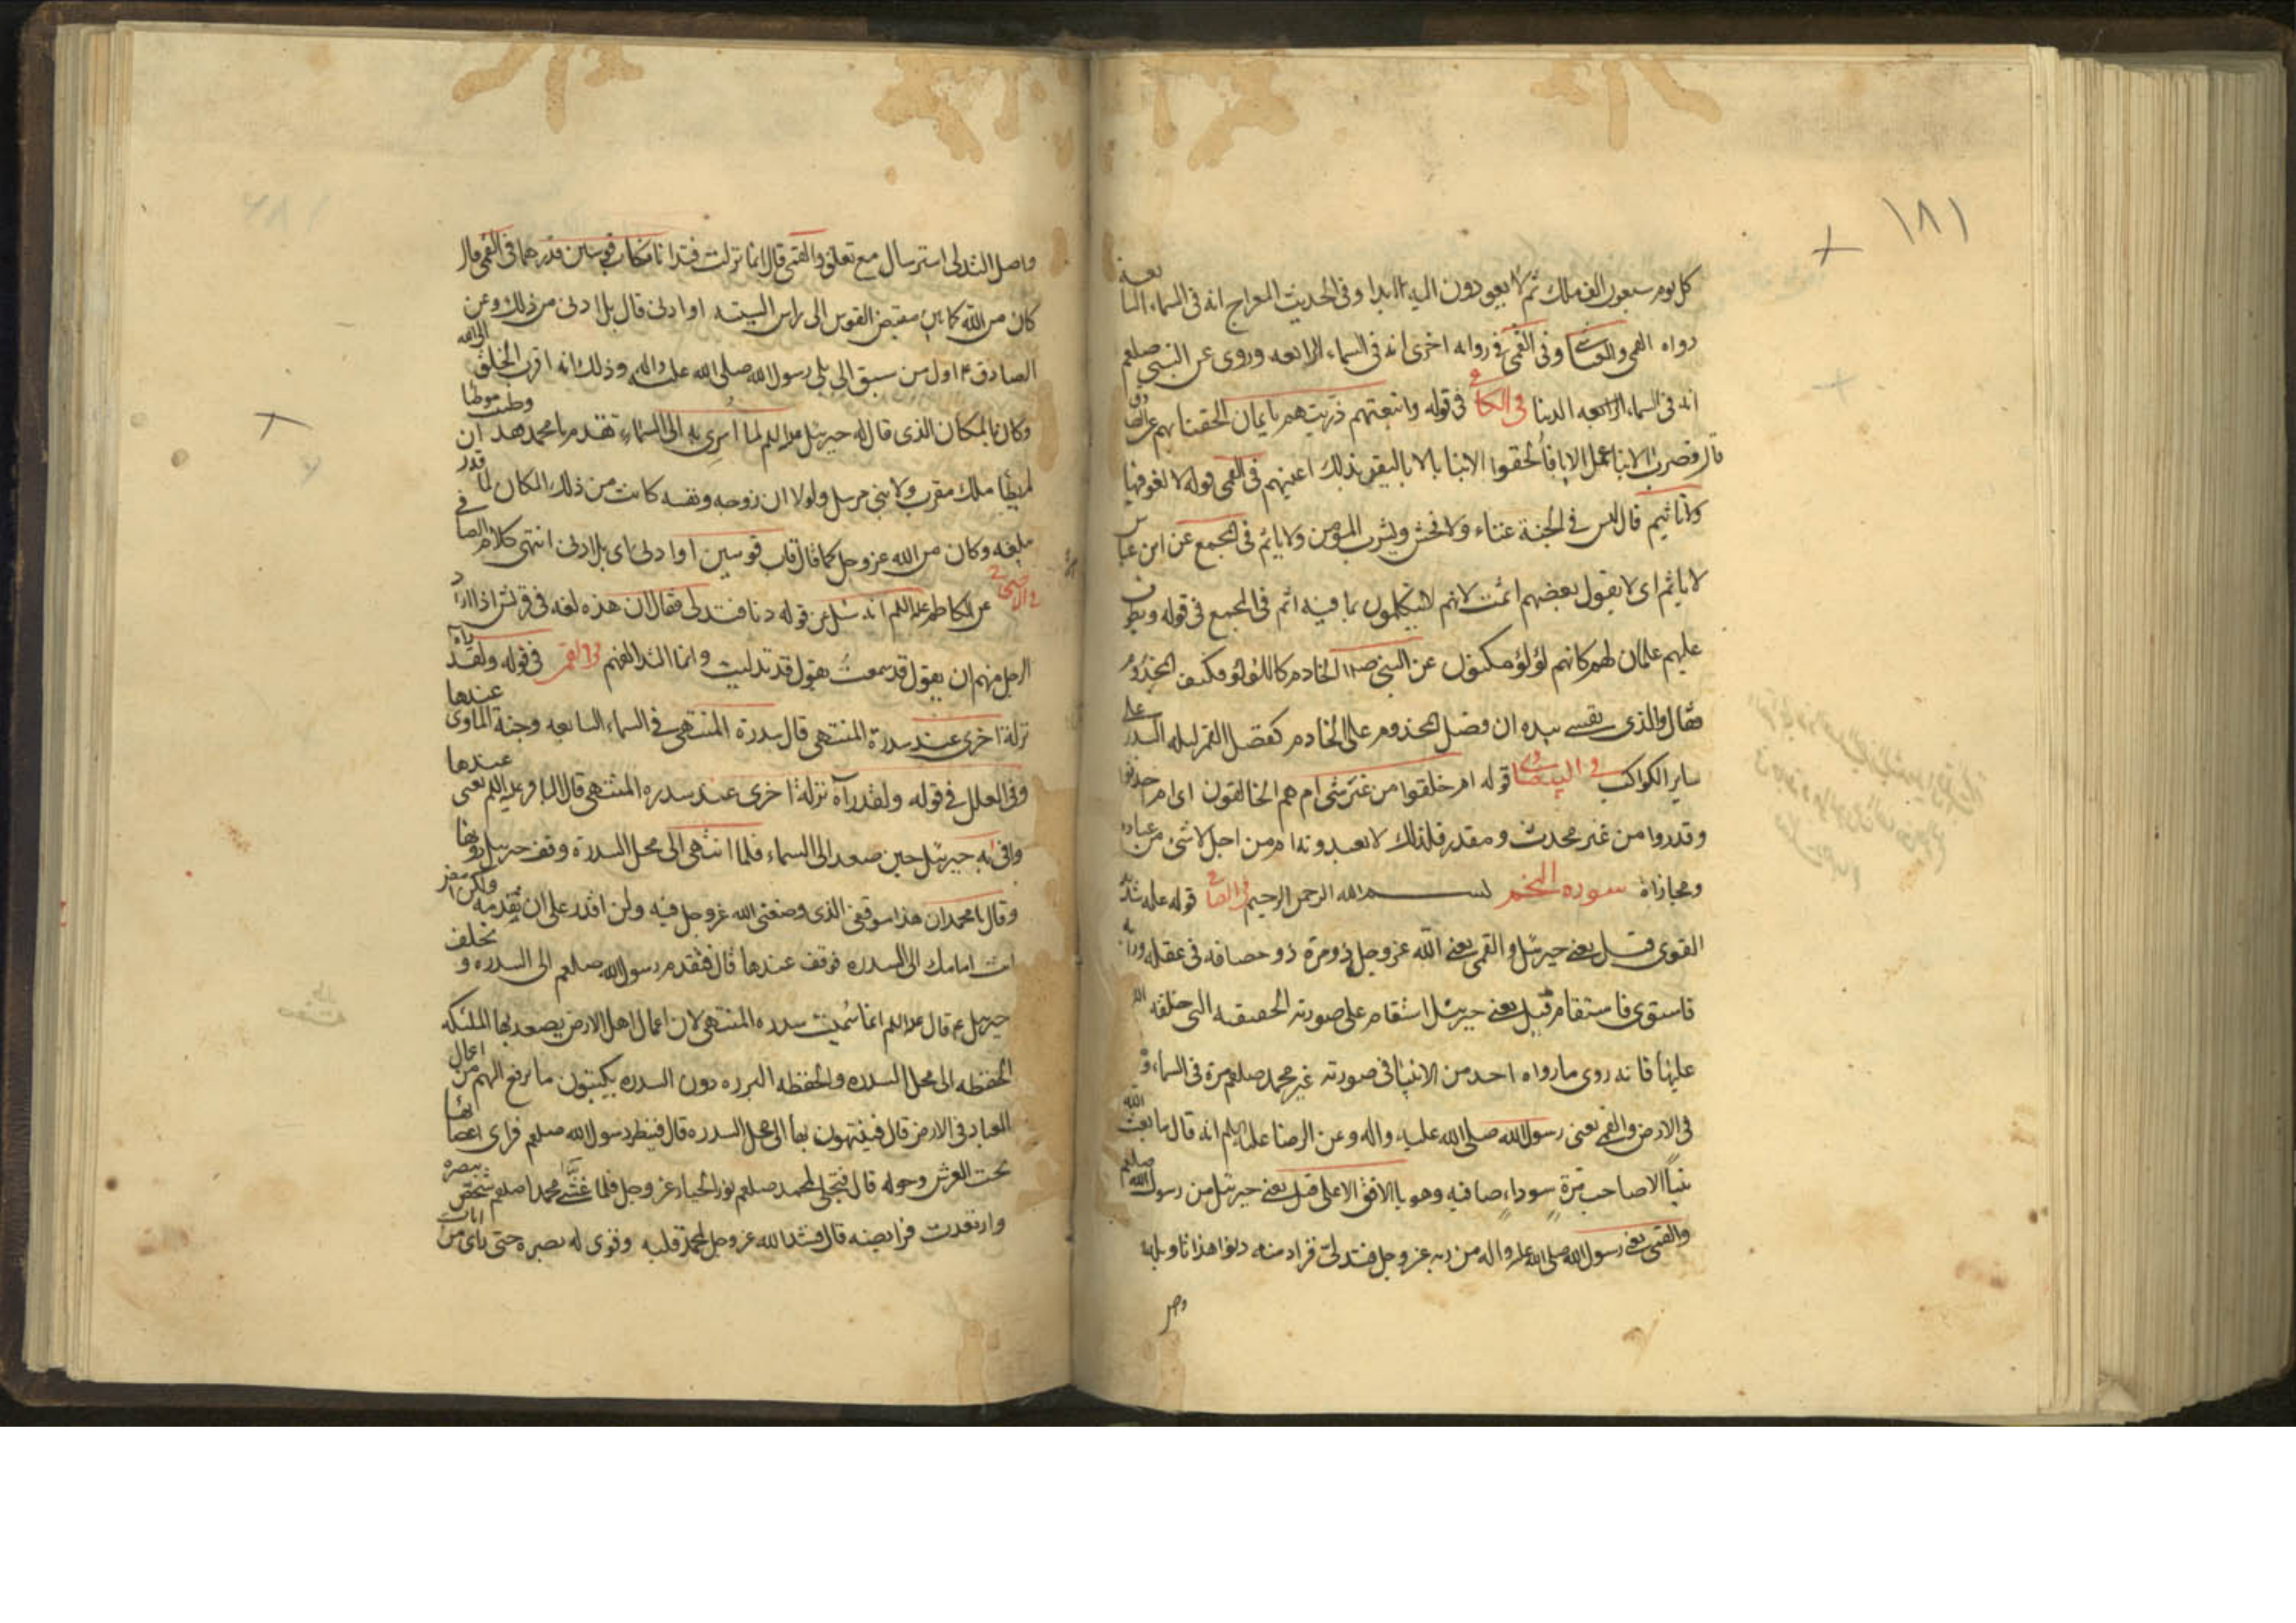 ١٨١
كل يوم سبعون الف ملك ثم لا يعودون اليه ابدا وفى الحديث المعراج انه فى السماء السابعة
رواه القمى والعياشى وفى القمى فى رواية اخرى انه فى السماء الرابعه وروى عن النبى صلعم
انه فى السماء الرابعه الدنيا فى الكافى فى قوله واتبعتهم ذريتهم بايمان الحقنا بهم عن الصادق
قال قصرت الابنا عمل الابا فألحقوا الابنا بالابا ليقر بذلك اعينهم فى القمى قوله لا لغو فيها
ولا تاثيم قال ليس فى الجنة غناء ولا فحش ويشرب المؤمن ولا ياثم فى المجمع عن ابن عباس
لا ياثم اى لا يقول بعضهم اثمت لانهم لا يتكلمون بما فيه اثم فى المجمع فى قوله ويطوف
عليهم غلمان لهم كانهم لؤلؤ مكنون عن النبى الخادم كاللؤلؤ فكيف المخدوم
فقال والذى نفسى بيده ان فضل المخدوم على الخادم كفضل القمر ليله البدر على
ساير الكواكب فى البيضاوى قوله ام خلقوا من غير شى ام هم الخالقون اى ام احدثوا
وقدروا من غير محدث ومقدر فلذلك لا يعبدونه ام من اجل لا شئ من عباده
ومجازاة سوره النجم بسم الله الرحمن الرحيم فى الصافى قوله علمه شديد
القوى قيل يعنى جبرئيل والقمى يعنى الله عزوجل ذو مرة ذو حصافه فى عقله ورايه
فاستوى فاستقام قيل يعنى جبرئيل استقام على صورته الحقيقيه التى خلقه الله
عليها فانه روى ما رواه احد من الانبيا فى صورته غير محمد صلعم مرة فى السماء ومرة
فى الارض والقمى يعنى رسول الله صلى الله عليه واله وعن الرضا عليه السلم انه قال ما بعث الله
نبيا الا صاحب مرة سوداء صافيه وهو بالافق الاعلى قيل يعنى جبرئيل من رسول الله صلعم
والقمى يعنى رسول الله صلى الله عليه واله من ربه عزوجل فتدلى فزاد منه دنوا هذا تاويله
واصل
واصل التدلى استرسال مع تعلق والقمى قال انما نزلت فتدانا فكان قاب قوسين قدرهما فى القمى قال
كان من الله كما بين مقبض القوس الى راس السيته او ادنى قال بل ادنى من ذلك وعن
الصادق ع اول من سبق الى بلى رسول الله صلى الله عليه واله وذلك انه اقرب الخلق الى الله
وكان بالمكان الذى قال له جبرئيل عليه السلم لما اسرى به الى السماء تقدم يا محمد فقد وطئت موطئا
لم يطأ ملك مقرب ولا نبى مرسل ولولا ان روحه ونفسه كانت من ذلك المكان لما قدر ان
يبلغه وكان من الله عزوجل كما قال قاب قوسين او ادنى اى بل ادنى انتهى كلام الصافى
فى الاحتجاج عن الكاظم عليه السلم انه سئل عن قوله دنا فتدلى فقال ان هذه لغه فى قريش اذا اراد
الرجل منهم ان يقول قد سمعت يقول قد تدليت وانما التدلى الفهم فى القمى فى قوله ولقد رآه
نزلة اخرى عند سدرة المنتهى قال سدرة المنتهى فى السماء السابعه وجنة الماوى عندها
وفى العلل فى قوله ولقد رآه نزلة اخرى عند سدره المنتهى قال الباقر عليه السلم يعنى عندها
وافى به جبرئيل حين صعد الى السماء فلما انتهى الى محل السدرة وقف جبرئيل دونها
وقال يا محمد ان هذا موقفى الذى وضعنى الله عزوجل فيه ولن اقدر على ان تقدمه ولكن امض
انت امامك الى السدره فوقف عندها قال فتقدم رسول الله صلعم الى السدره وتخلف
جبرئيل ع قال عليه السلم انما سميت سدره المنتهى لان اعمال اهل الارض يصعد بها الملئكه
الحفظه الى محل السدره والحفظه البرره دون السدره يكتبون ما يرفع اليهم من اعمال
العباد فى الارض قال فينتهون بها الى محل السدره قال فنظر رسول الله صلعم فراى اغصانها
تحت العرش وحوله قال فتجلى لمحمد صلعم نور الجبار عزوجل فلما غشى محمدا صلعم شخص ببصره
وارتعدت فرايصه قال فشد الله عزوجل لمحمد قلبه وقوى له بصره حتى راى من ايات